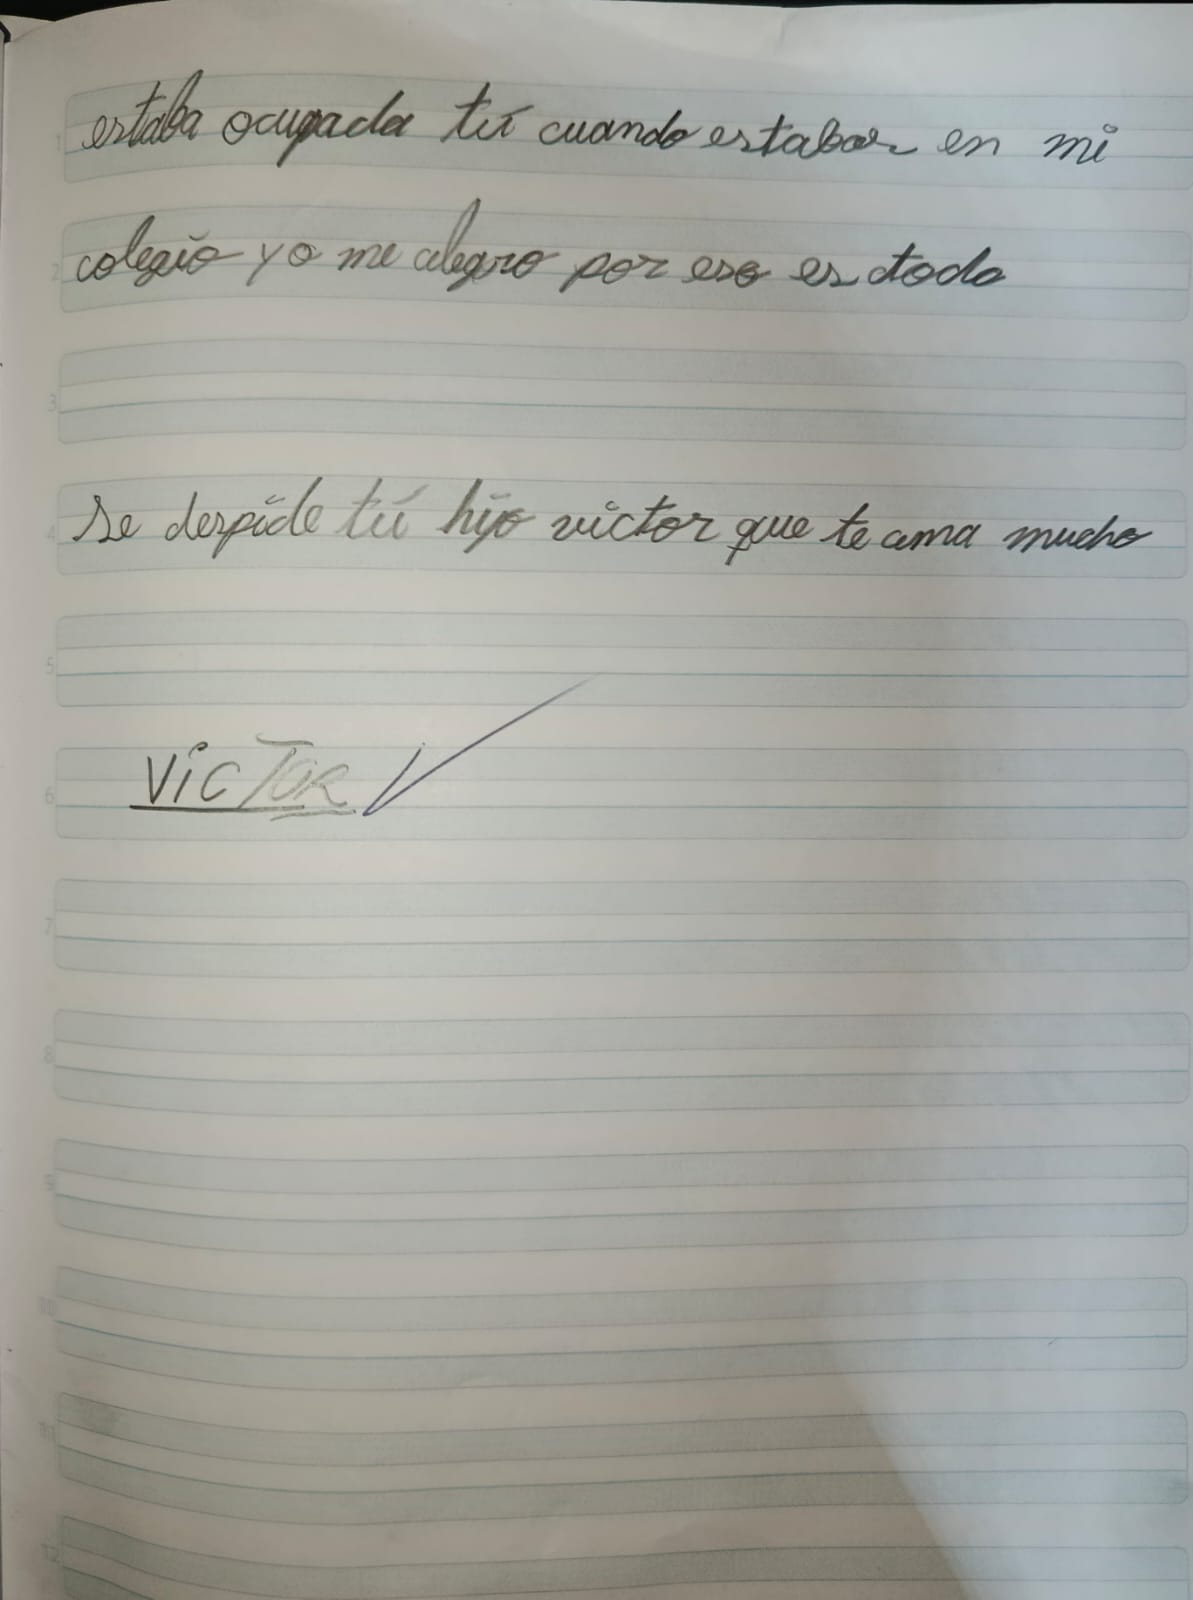 estaba ocupada tú cuando estabas en mi
colegio yo me alegro por eso es todo
se despide tú hijo victor que te ama mucho
VICTOR